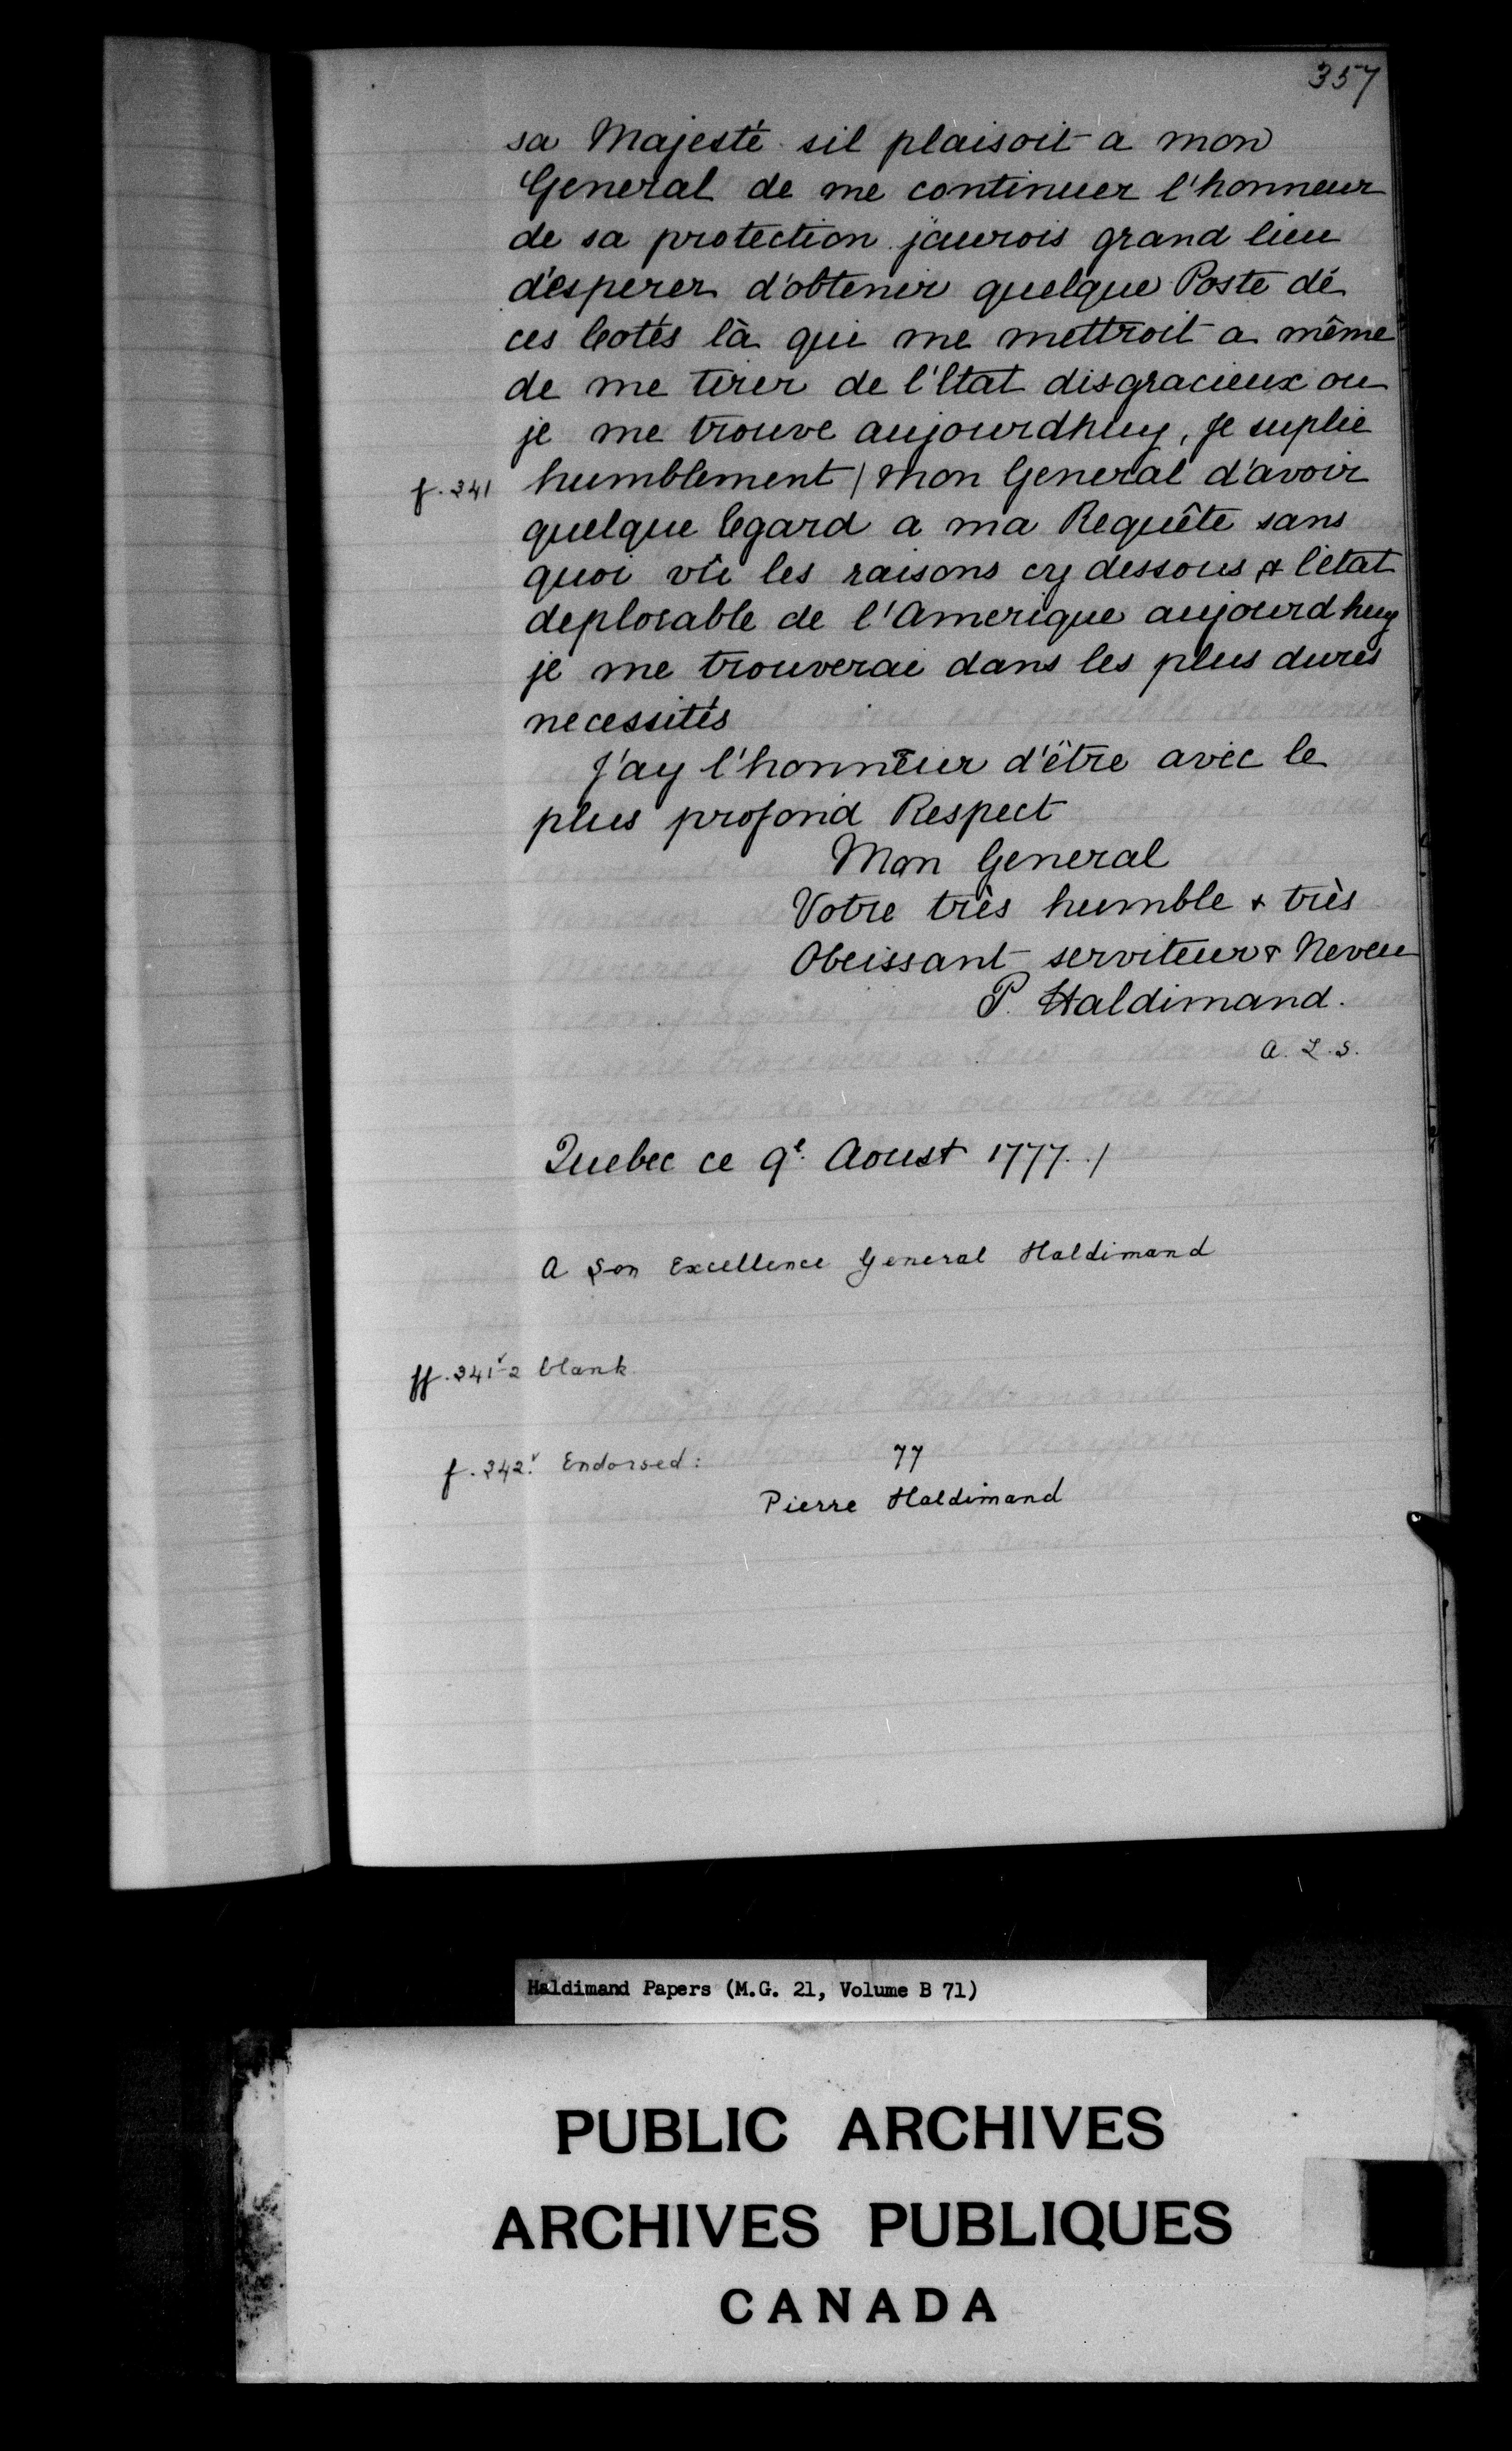 357
sa Majesté sil plaisoit a mon
General de me continuer l'honneur
de sa protection j'aurois grand lieu
d'esperer d'obtenir quelque Poste dé
ces Cotés là qui me mettroit a même
de me tirer de l'Etat disgracieux ou
je me trouve aujourdhuy, Je suplie
f. 341 humblement / Mon General d'avoir
quelque Egard a ma Requête sans
quoi vû les raisons cy dessous & l'état
deplorable de l'Amerique aujourdhuy
je me trouverai dans les plus dures
necessités
J'ay l'honneur d'être avec le
plus profond Respect
Mon General
Votre très humble & très
Obeissant serviteur & Neveu
P. Haldimand.
A. L. S.
Quebec ce 9e Aoust 1777. /
A Son Excellence General Haldimand
ff. 341v-2 blank
f. 342v. Endorsed: 77
Pierre Haldimand
Haldimand Papers (M.G. 21, Volume B 71)
PUBLIC ARCHIVES
ARCHIVES PUBLIQUES
CANADA